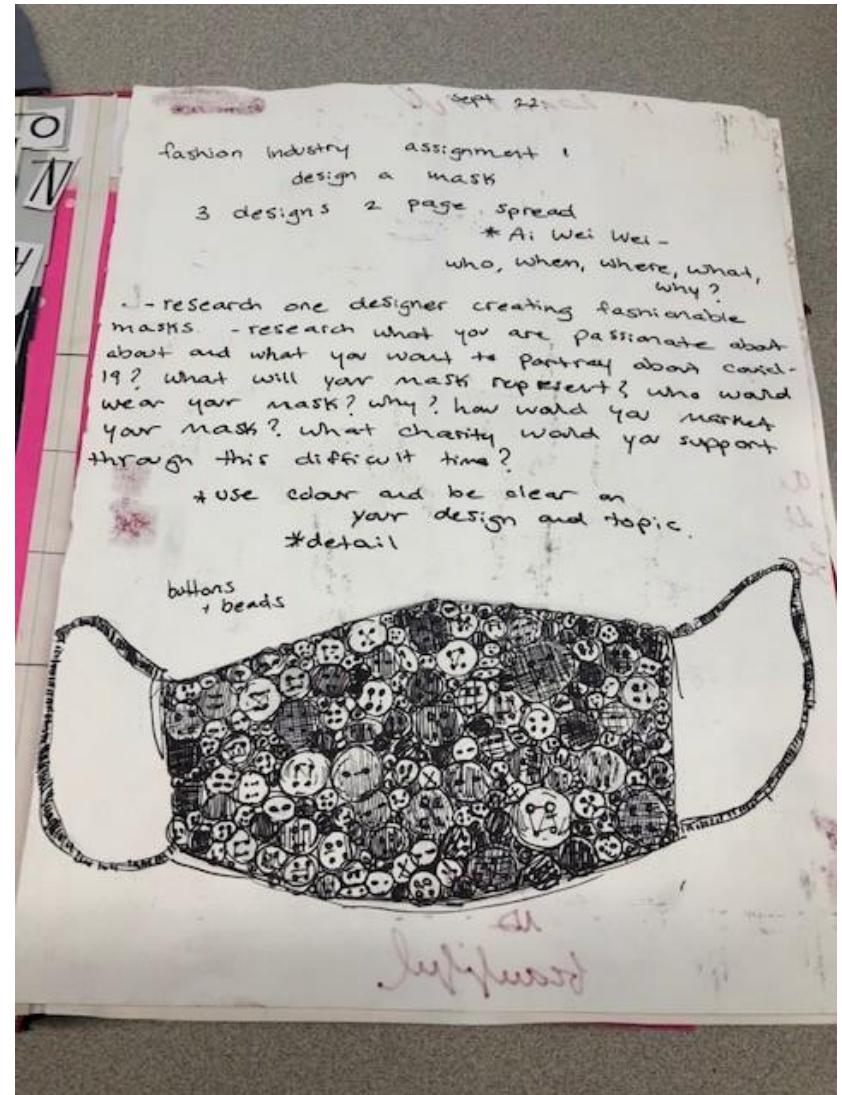 O
N
Sept 22
fashion industry assignment 1
design a mask
3 designs 2 page spread
* Ai Wei Wei -
who, when, where, what,
why?
- research one designer creating fashionable
masks. - research what you are passionate about
about and what you want to portray about covid-
19? what will your mask represent? who would
wear your mask? why? how would you market
your mask? what charity would you support
through this difficult time?
* use colour and be clear on
your design and topic.
* detail
buttons
+ beads
is
beautiful.